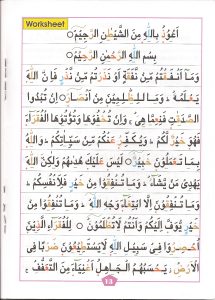 Worksheet
اَعُوْذُ بِاللّٰهِ مِنَ الشَّيْطٰنِ الرَّجِيْمِ ○
بِسْمِ اللّٰهِ الرَّحْمٰنِ الرَّحِيْمِ ○
وَمَآ اَنْفَقْتُمْ مِّنْ نَّفَقَةٍ اَوْ نَذَرْتُمْ مِّنْ نَّذْرٍ فَاِنَّ اللّٰهَ
يَعْلَمُهٗ ؕ وَمَا لِلظّٰلِمِيْنَ مِنْ اَنْصَارٍ ○ اِنْ تُبْدُوا
الصَّدَقٰتِ فَنِعِمَّا هِيَ ۚ وَاِنْ تُخْفُوْهَا وَتُؤْتُوْهَا الْفُقَرَآءَ
فَهُوَ خَيْرٌ لَّكُمْ ؕ وَيُكَفِّرُ عَنْكُمْ مِّنْ سَيِّاٰتِكُمْ ؕ وَاللّٰهُ
بِمَا تَعْمَلُوْنَ خَبِيْرٌ ○ لَيْسَ عَلَيْكَ هُدٰىهُمْ وَلٰكِنَّ اللّٰهَ
يَهْدِيْ مَنْ يَّشَآءُ ؕ وَمَا تُنْفِقُوْا مِنْ خَيْرٍ فَلِاَنْفُسِكُمْ
وَمَا تُنْفِقُوْنَ اِلَّا ابْتِغَآءَ وَجْهِ اللّٰهِ ؕ وَمَا تُنْفِقُوْا مِنْ
خَيْرٍ يُّوَفَّ اِلَيْكُمْ وَاَنْتُمْ لَا تُظْلَمُوْنَ ○ لِلْفُقَرَآءِ الَّذِيْنَ
اُحْصِرُوْا فِيْ سَبِيْلِ اللّٰهِ لَا يَسْتَطِيْعُوْنَ ضَرْبًا فِي
الْاَرْضِ ؗ يَحْسَبُهُمُ الْجَاهِلُ اَغْنِيَآءَ مِنَ التَّعَفُّفِ ۚ
13